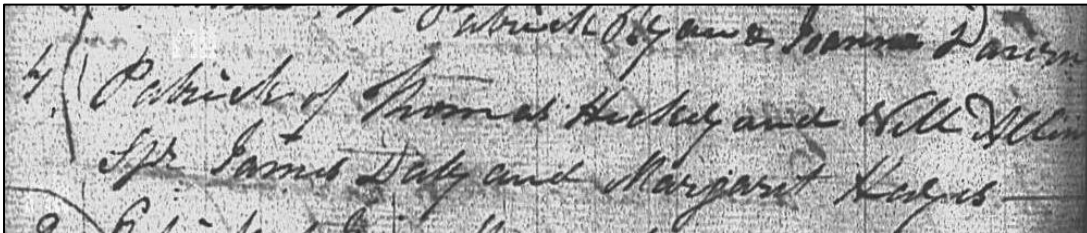 Patrick Ryan & Joanna
4 Patrick of Thomas Hickey and Nell
Sps James Daly and Margaret Hayes